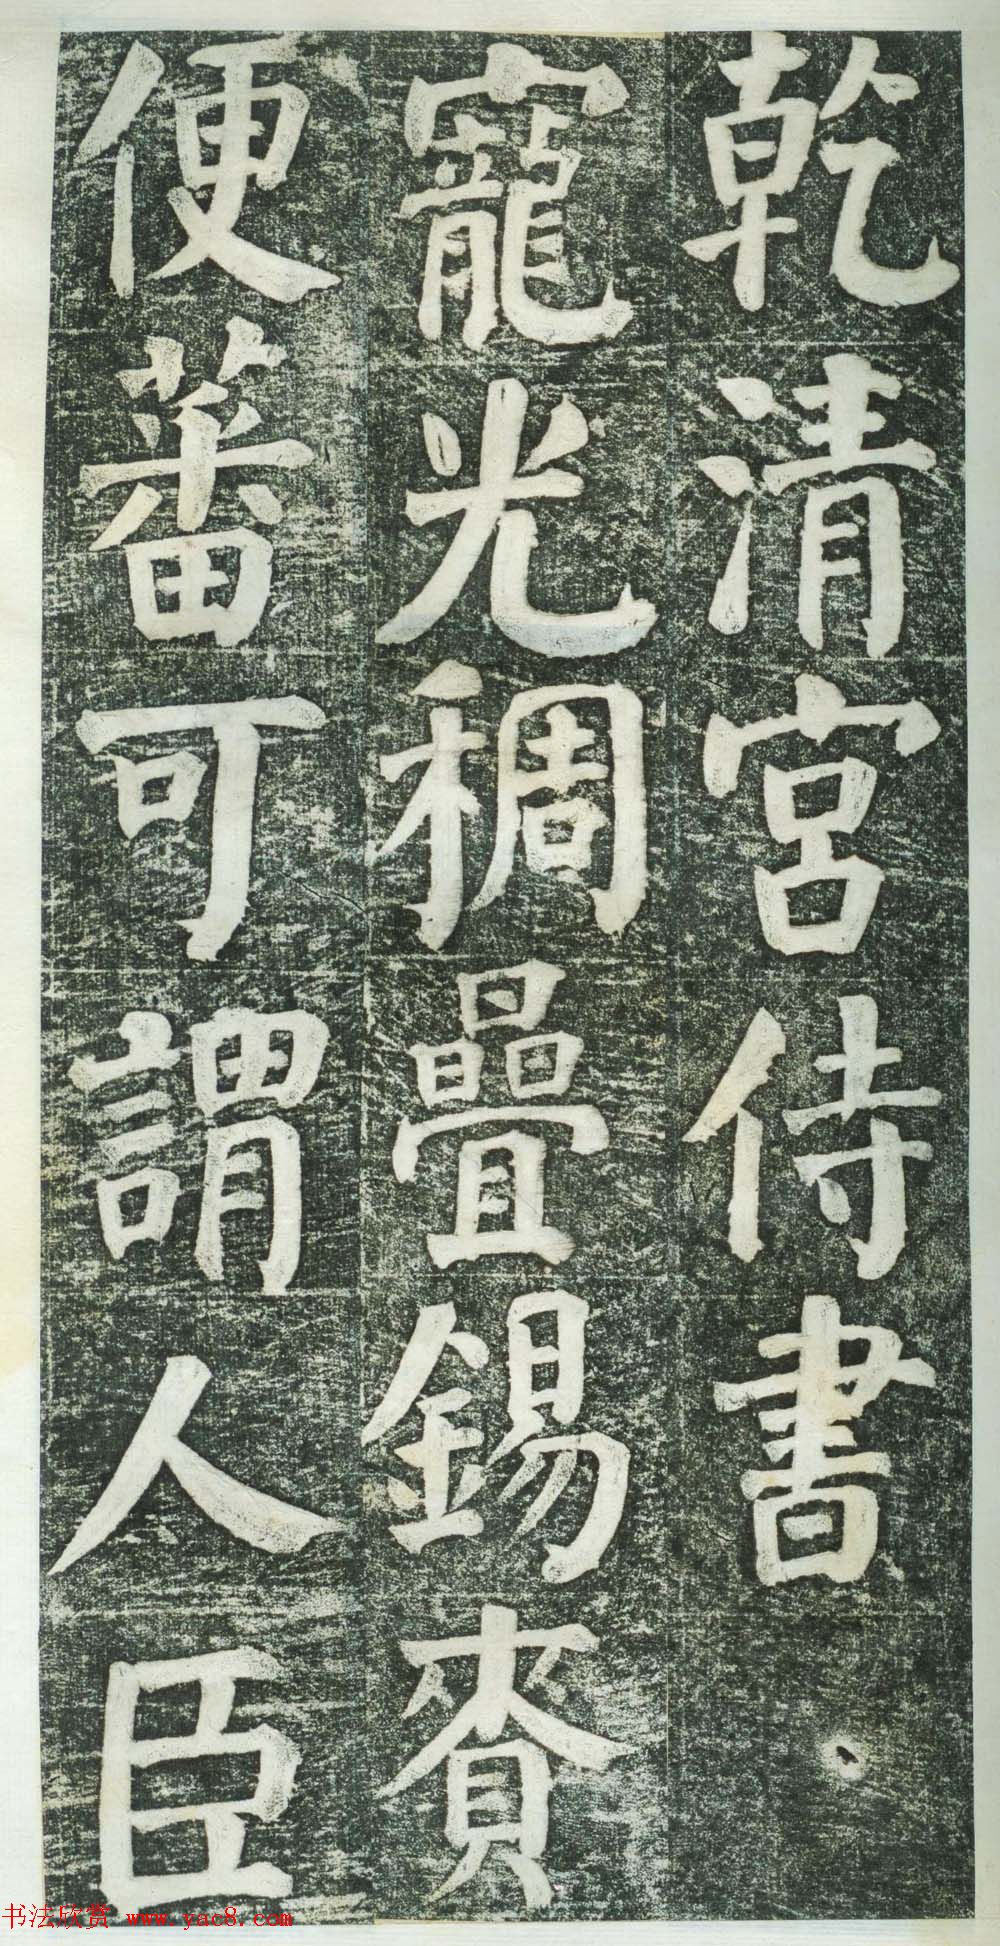 乾清宮侍書
寵光稠疊錫賚
便蕃可謂人臣
书法欣赏 www.yac8.com